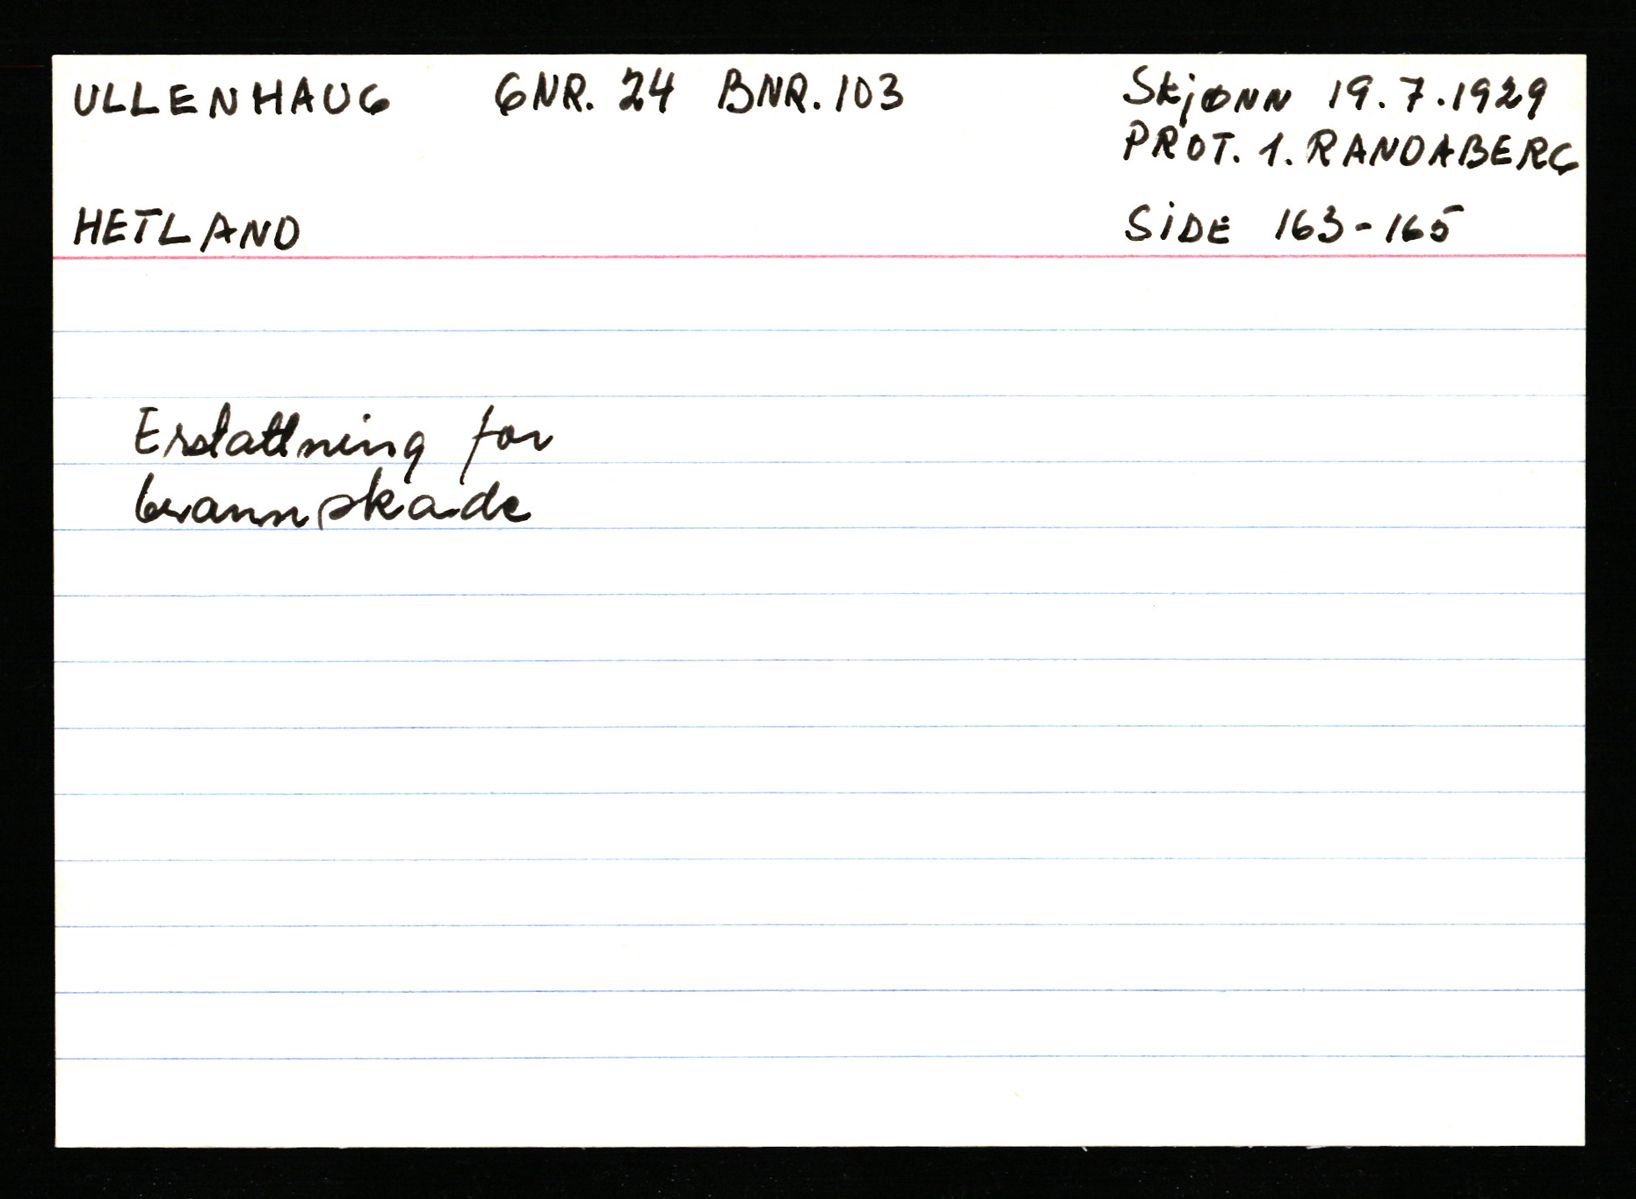 ULLENHAUG GNR. 24 BNR. 103
Skjønn 19.7.1929
PROT. 1. RANDABERG
HETLAND
SIDE 163-165
Erstattning for
brannskade